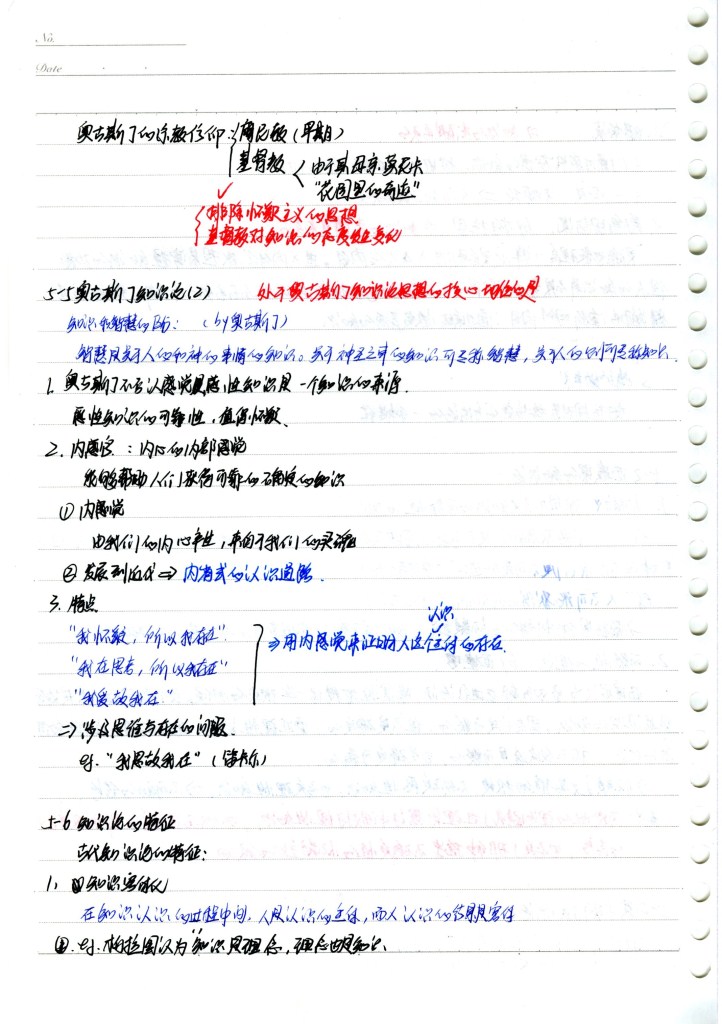 No.
Date
奥古斯丁的宗教信仰：摩尼教（早期）
基督教 由于其母亲莫尼卡
"花园里的奇迹"
排除怀疑主义的思想
基督教对知识的态度发生变化
5-5 奥古斯丁知识论(2) 处于奥古斯丁知识论思想的核心地位的是
知识和智慧的区分：（by奥古斯丁）
智慧是关于人的和神的事情的知识。关于神圣之事的知识可是称智慧，关于人的则可是称知识
1. 奥古斯丁不否认感觉是感性知识是一个知识的来源
感性知识的可靠性，值得怀疑
2. 内感觉：内心的内部感觉
能够帮助人们获得可靠的确定的知识
① 内感觉
由我们的内心产生，来自于我们的灵魂
② 发展到近代⇒内省式的认识道路
3. 特点
"我怀疑，所以我存在"
"我在思考，所以我存在"
"我爱故我在."
认识
⇒用内感觉来证明人这个主体的存在.
⇒涉及思维与存在的问题.
eg. "我思故我在"（笛卡尔）
5-6 知识论的特征
古代知识论的特征：
1. 知识客体化
在知识认识的过程中间，人是认识的主体，而人认识的信息是客体
eg. 柏拉图认为知识是理念，理念也是知识